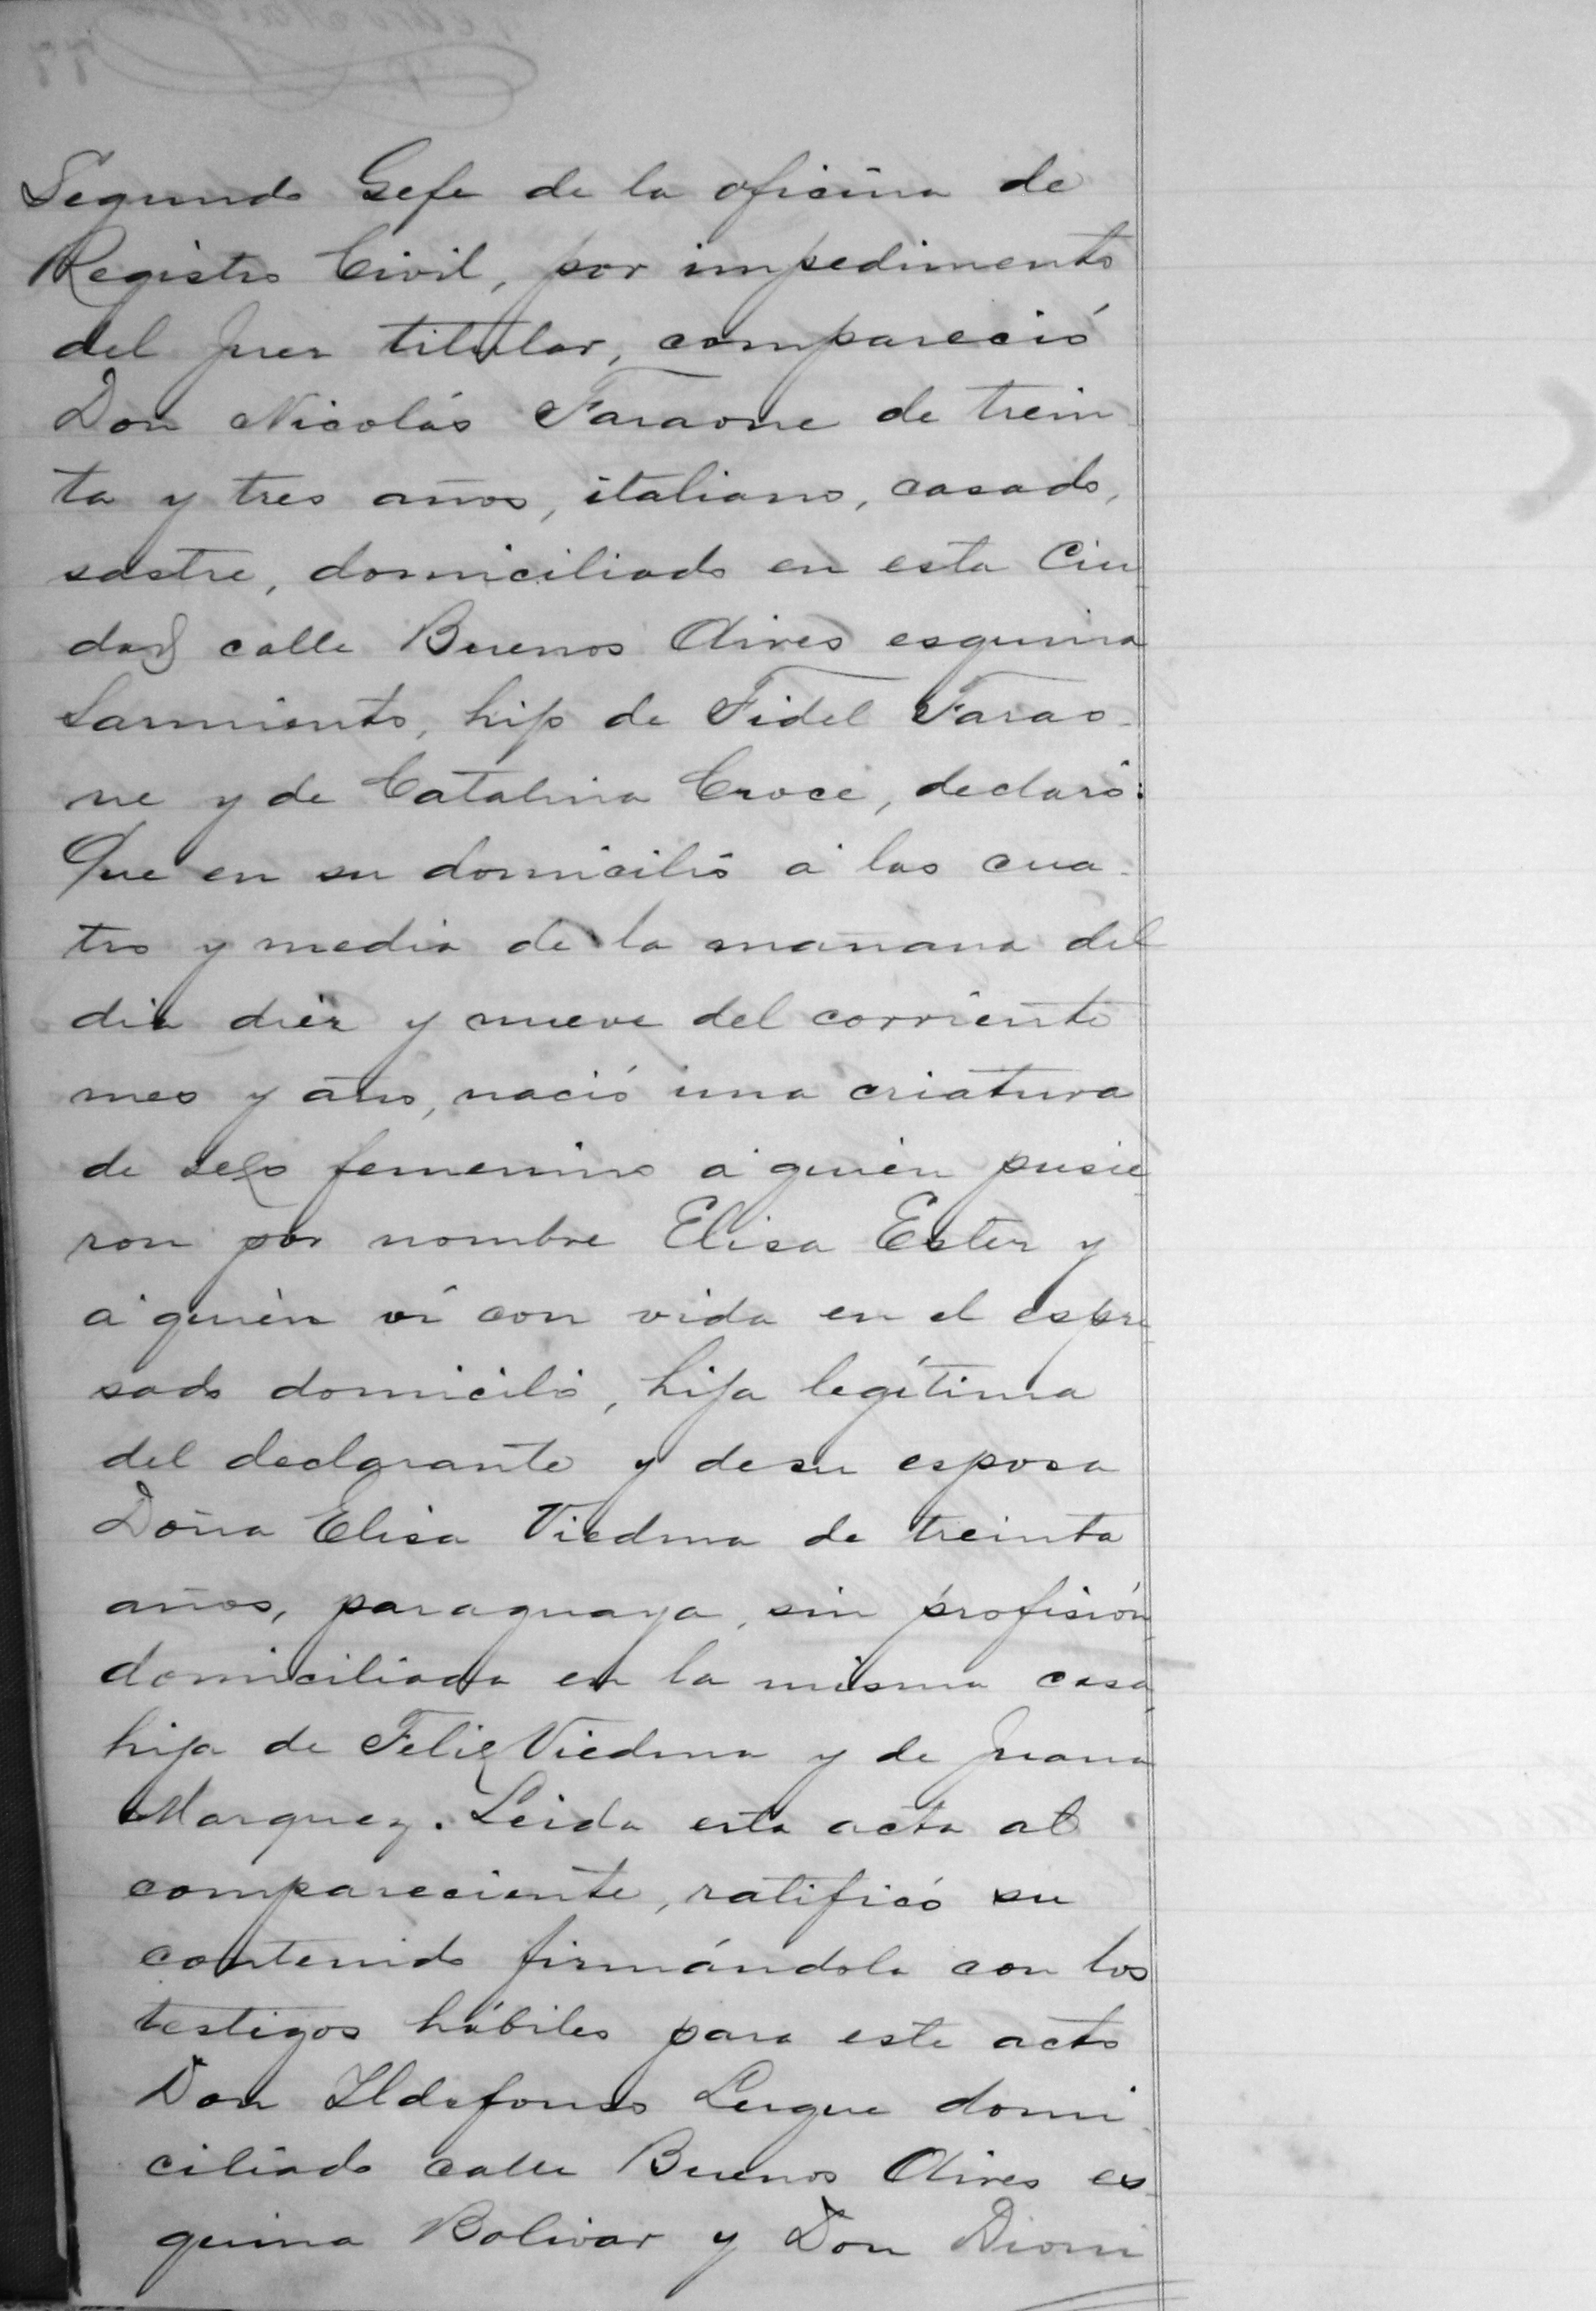 Segundo Gefe de la oficina de
Registro Civil, por impedimento
del Juez titular, compareció
Don Nicolás Faraone de trein
ta y tres años, italiano, casado,
sastre, domiciliado en esta Ciu
dad calle Buenos Aires esquina
Sarmiento, hijo de Fidel Farao-
ne y de Catalina Croce, declaró:
Que en su domicilio á las cua-
tro y media de la mañana del
dia diez y nueve del corriente
mes y año, nació una criatura
de sexo femenino á quien pusie
ron por nombre Elisa Ester y
á quien ví con vida en el espre
sado domicilio, hija legítima
del declarante y de su esposa
Doña Elisa Viedma de treinta
años, paraguaya, sin profisión
domiciliada en la misma casa,
hija de Felix Viedma y de Juana
Marquez. Leida esta acta al
compareciente, ratificó su
contenido firmándola con los
testigos hábiles para este acto
Don Ildefonso Luque domi
ciliado calle Buenos Aires es
quina Bolivar y Don Dioni